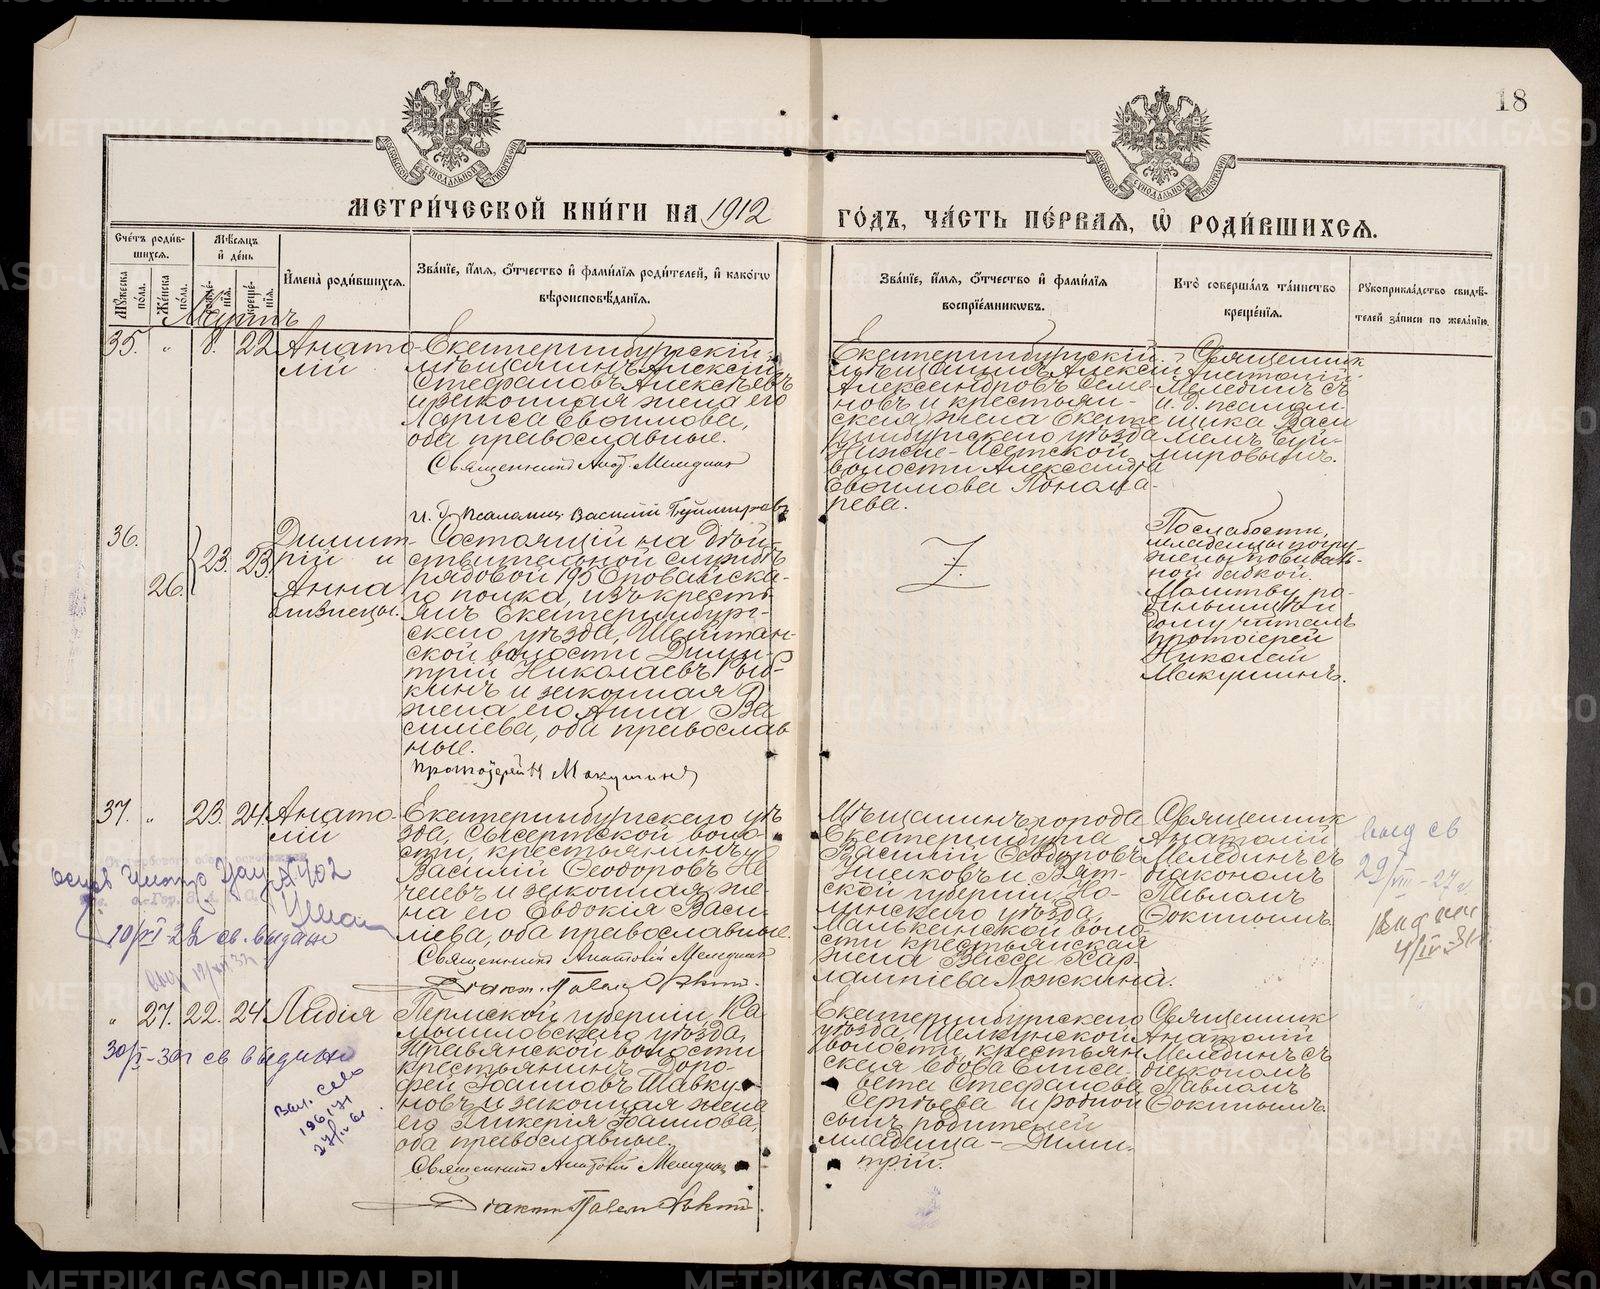 18
МЕТРИ́ЧЕСКОЙ КНИ́ГИ НА 1912
ГО́ДЪ, ЧА́СТЬ ПЕ́РВАЯ, Ѡ҆ РОДИ́ВШИХСЯ.
Сче́тъ роди́в-
шихся.
Мꙋ́жеска по́ла.
Же́нска по́ла.
Мѣ́сяцъ и҆ де́нь
Имена̀ роди́вшихся.
Зва́нїе, и҆́мя, ѻ҆́тчество и҆ фами́лїя роди́телей, и҆ како́гѡ
вѣроисповѣ́данїя.
Зва́нїе, и҆́мя, ѻ҆́тчество и҆ фами́лїя
воспрїе́мникѡвъ.
Кто̀ соверша́лъ та́инство
креще́нїя.
Рꙋкоприкла́дство свидѣ́-
телей за́писи по жела́нїю.
Мартъ
35. " 8. 22. Анато-
лій
Екатеринбургскій
мѣщанинъ Алексій
Стефановъ Алексѣевъ
и законная жена его
Лариса Евѳимова,
оба православные.
Священникъ Анат. Меледин
и. д. псаломщ. Василій Буймировъ
Екатеринбургскій
мѣщанинъ Алексій
Александровъ Семе-
новъ и крестьян-
ская жена Екате-
ринбургскаго уѣзда
Нижне-Исетской
волости Александра
Евѳимова Понома-
рева.
Священник
Анатолій
Мелединъ съ
и. д. псалом-
щика Васи
ліемъ Буй-
мировымъ.
36.
26. 23. 23.
Димит-
рій и
Анна
близнецы.
Состоящій на дѣй-
ствительной службѣ
рядовой 195 Оровайска-
го полка, изъ кресть
янъ Екатеринбург-
скаго уѣзда, Шайтан-
ской волости Дими-
трій Николаевъ Рыб-
кинъ и законная
жена его Анна Ва
силіева, оба православ
ные.
Протоіерей Н Макушинъ
По слабости,
младенцы погру-
жены повиваль-
ной бабкой.
Молитву ро-
дильницѣ и
дому читалъ
протоіерей
Николай
Макушинъ.
37. " 23. 24. Анато-
лій
Екатеринбургскаго уѣ
зда, Сысертской воло-
сти, крестьянинъ
Василій Ѳеодоровъ Не
чаевъ и законная же-
на его Евдокія Васи-
ліева, оба православные.
Священникъ Анатолій Меледин
Діакон Павелъ Ѳокин.
Мѣщанинъ города
Екатеринбурга
Василій Ѳеодоровъ
Ушковъ и Вят-
ской губерніи Но-
линскаго уѣзда,
волo-
сти крестьянская
жена Васса Хар-
лампіева Ложкина.
Священник
Анатолій
Мелединъ съ
діакономъ
Павломъ
Ѳокинымъ.
выд св
29/VIII-27 г.
10/XI-22 св. выдано
" 27. 22. 24. Лидія
Пермской губерніи, Ка
мышловскаго уѣзда,
Травянской волости
крестьянинъ Доро-
фей Іоанновъ Шавку-
новъ и законная жена
его Гликерія Іоаннова,
оба православные.
Священникъ Анатолій Меледин
Діакон Павелъ Ѳокин.
Екатеринбургскаго
уѣзда, Щелкунской
волости, крестьян
ская вдова Елиса-
вета Стефанова
Сергѣева и родной
сынъ родителей
младенца - Дими-
трій.
Священник
Анатолій
Мелединъ съ
діакономъ
Павломъ
Ѳокинымъ.
св выдано
METRIKI.GASO-URAL.RU